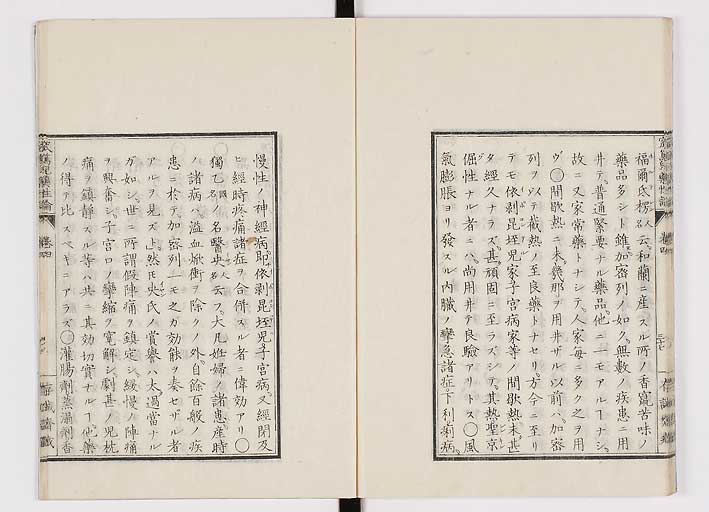 福爾氐楞名人云和蘭ニ産スル所ノ香竄苦味ノ
藥品多シト雖加密列ノ如ク無數ノ疾患ニ用
井テ普通緊要ナル藥品他ニ一モアルヿナシ
故ニ又家常藥トナシテ人家毎ニ多ク之ヲ用
ヴ○間歇熱ニ未幾那ヲ用井ザル以前ハ加密
列ヲ以テ截熱ノ至良藥トナセリ方今ニ至リ
テモ依剥昆垤兒家子宮病家等ノ間歇熱未甚
タ經久ナラズ甚頑固ニ至ラズシテ其熱聖京
倔性ナル者ニハ尚用井テ良驗アリトス○風
氣膨脹ヨリ發スル内臟ノ攣急諸症下利痢病
慢性ノ神經病即依剥昆垤兒子宮病又經閉及
ヒ經時疼痛諸症ヲ合併スル者ニ偉効アリ○
獨乙名國ノ名醫史名人云フ大凡姙婦ノ諸患産時
ノ諸病ハ溢血焮衝ヲ除クノ外自餘百般ノ疾
患ニ於テ加密列一モ之カ効能ヲ奏セザル者
アルヲ見ズ上然モ史氏ノ賞譽ハ太過當ナル
カ如シ世ニ所謂假陣痛ヲ鎮定シ緩慢ノ陣痛
ヲ興奮シ子宮口ノ攣縮ヲ寛解シ劇甚ノ兒枕
痛ヲ鎮靜スル等ハ共ニ其効切實ナルヿ他藥
ノ得テ比スベキニアラズ○灌腸劑蒸溻劑香